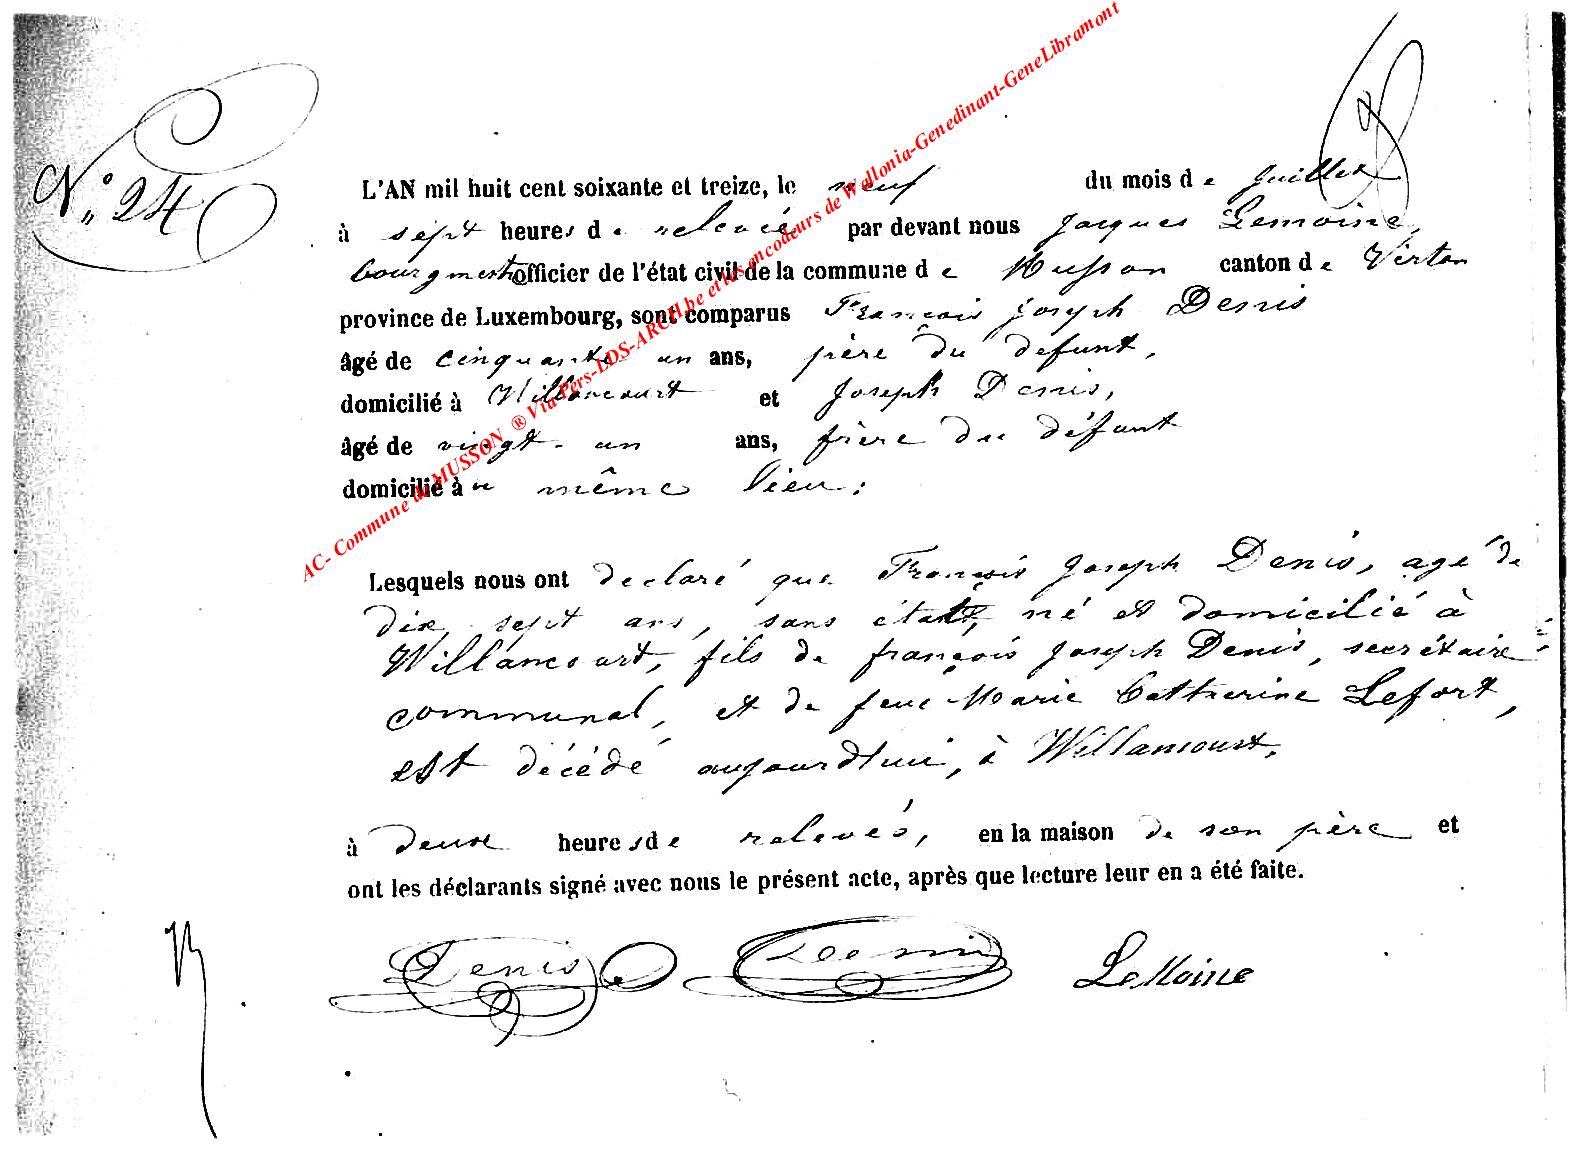 N° 24
L'AN mil huit cent soixante et treize, le neuf du mois de Juillet
à sept heures de relevée par devant nous Jacques Lemoine,
bourgmestre officier de l'état civil de la commune de Musson canton de Virton
province de Luxembourg, sont comparus François Joseph Denis
âgé de cinquante un ans, père du defunt,
domicilié à Willancourt et Joseph Denis,
âgé de vingt-un ans, frère du défunt
domicilié à u même lieu;
Lesquels nous ont declaré que François Joseph Denis, agé de
dix sept ans, sans état, né et domicilié à
Willancourt, fils de françois Joseph Denis, secrétaire
communal, et de feue Marie Catherine Lefort,
est décédé aujourd'hui, à Willancourt,
à deux heures de relevés, en la maison de son père et
ont les déclarants signé avec nous le présent acte, après que lecture leur en a été faite.
Denis Denis LeMoine
AC- Commune de MUSSON ® Via Pers-LDS-ARCH.be et les encodeurs de Wallonia-Genedinant-GeneLibramont